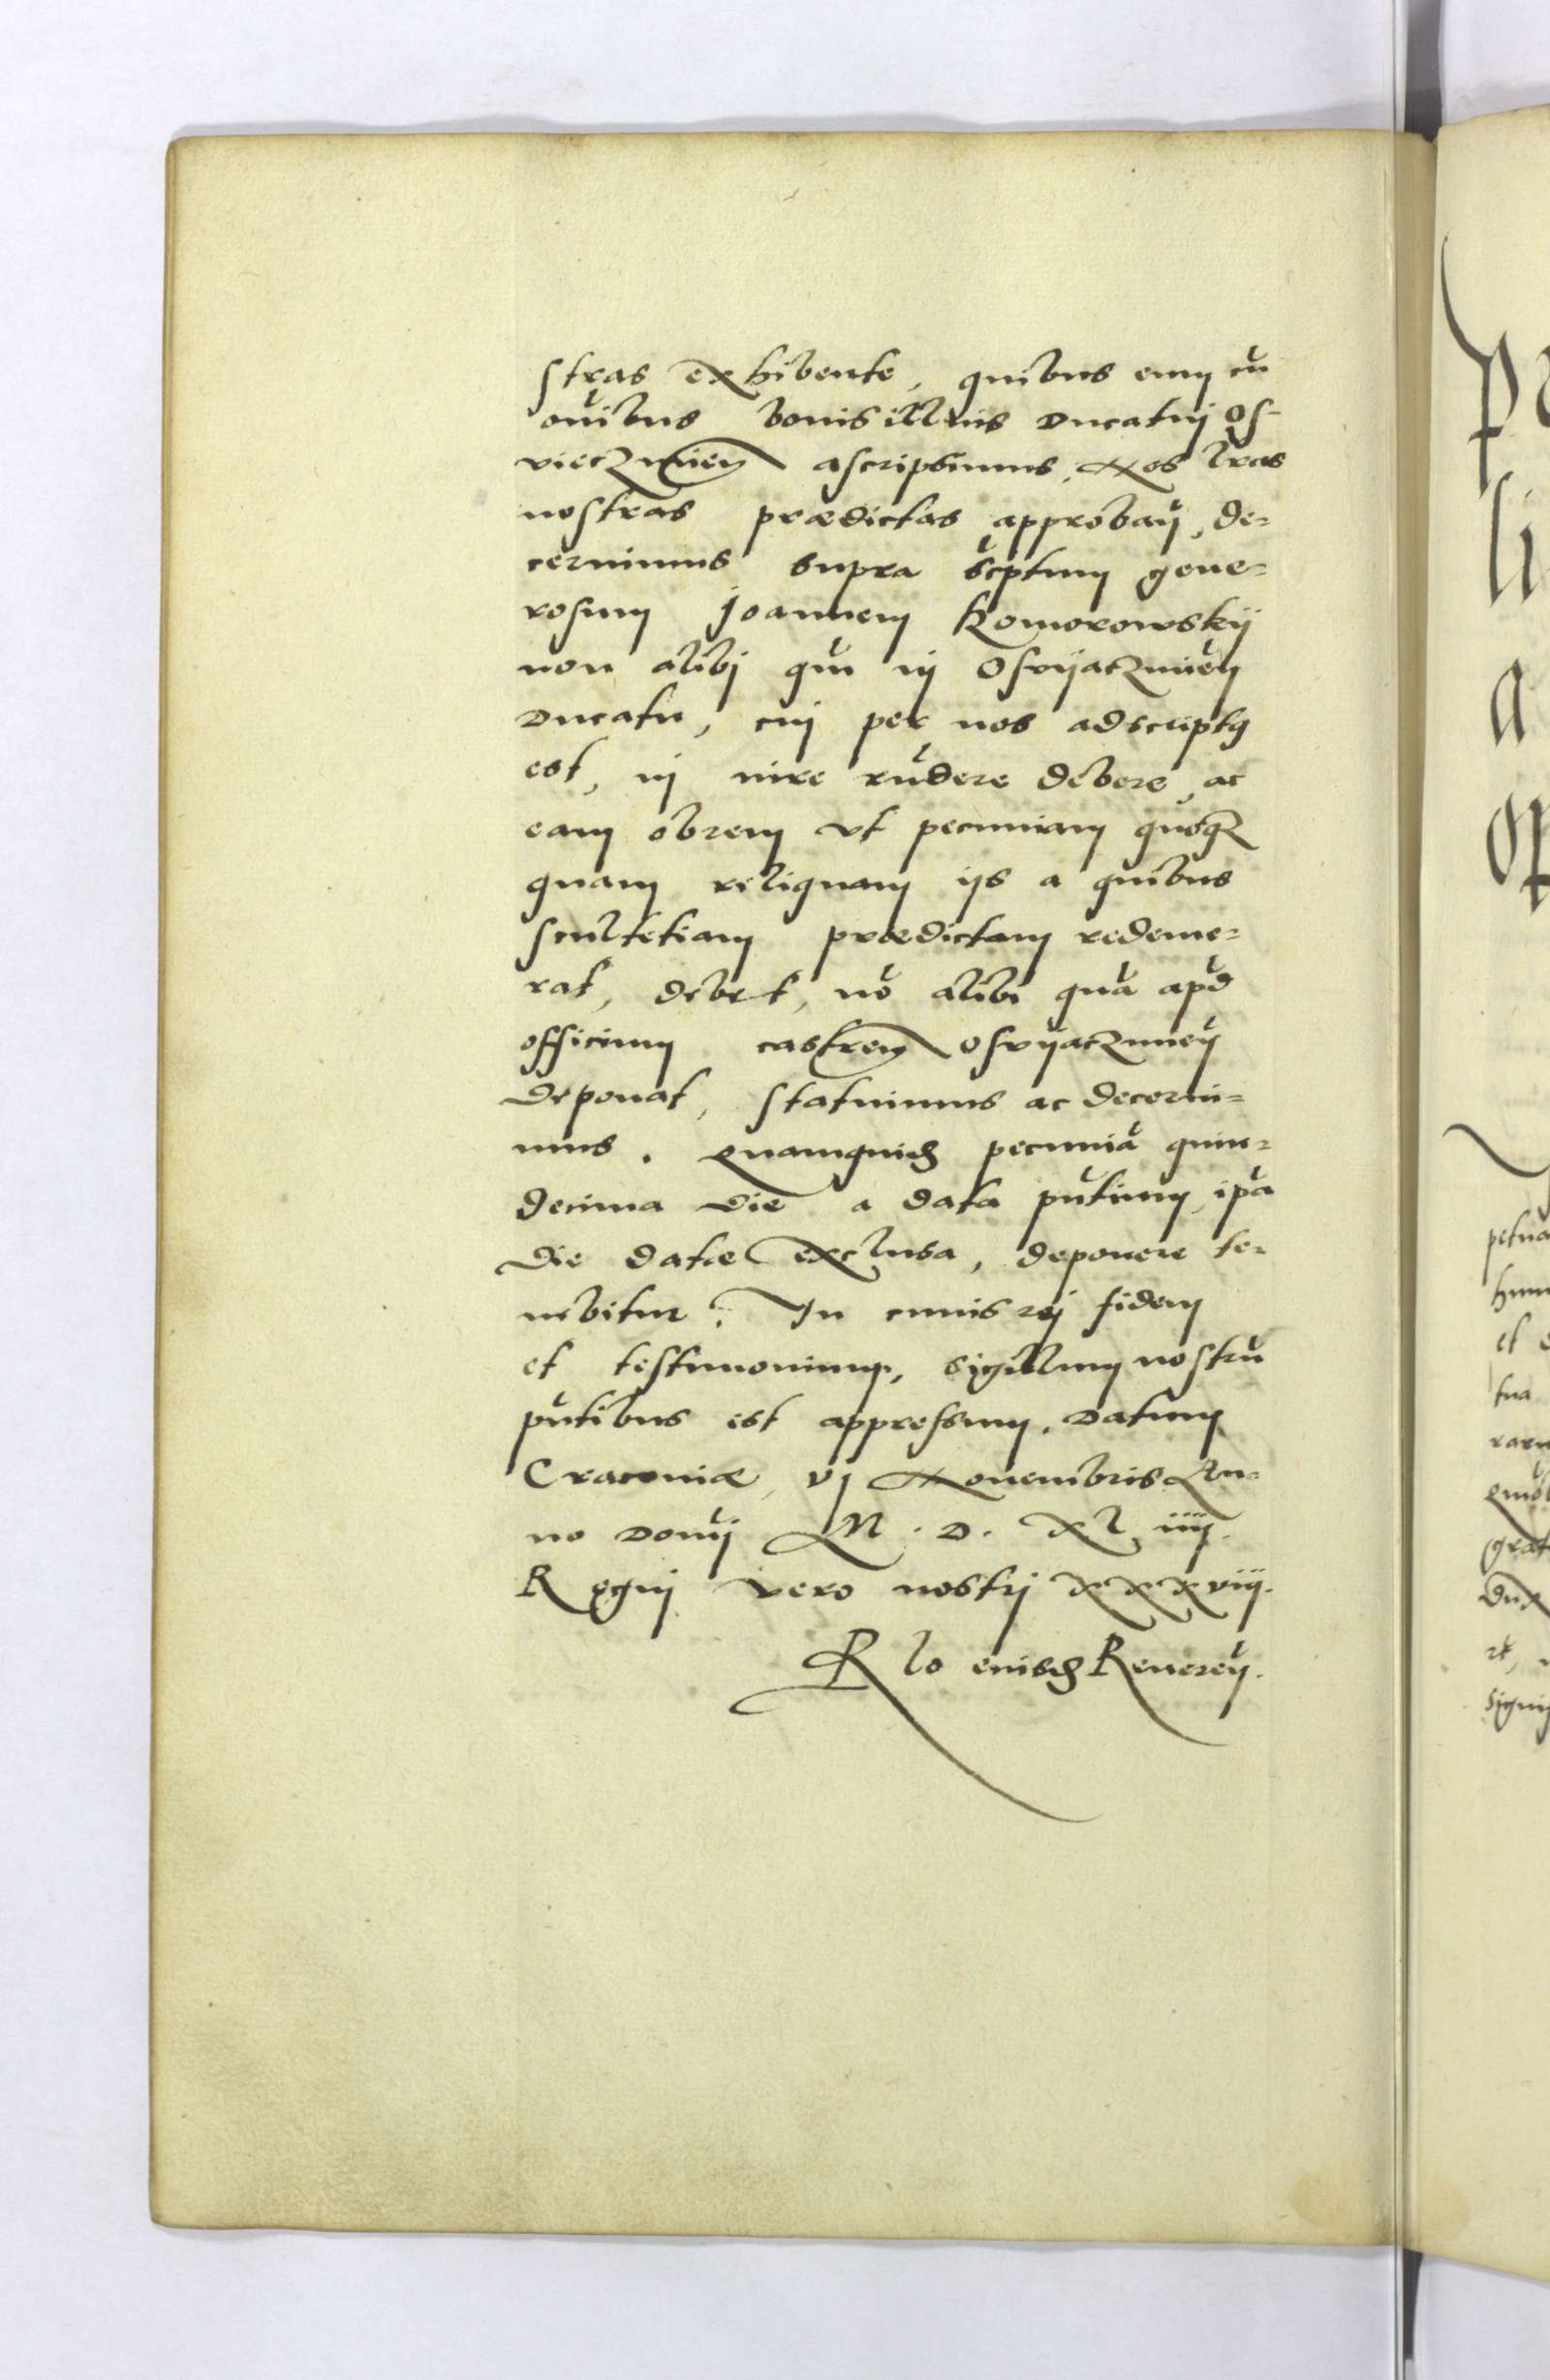 stras exhibente, quibus eum cū
oībus bonis illius Ducatuj Os-
vieczimeñ ascripsimus, Nos lras
nostras prædictas approbañ, de=
cernimus supra sc̄ptum gene=
rosum Joannem Komorowskij
non alibj qm̄ in Osvijaczimeñ
Ducatu, cui per nos adscriptus
est, in iure rn̄dere debere, ac
eam obrem vt pecuniam quoque
quam reliquam ijs a quibus
scultetiam prædictam redeme=
rat, debet, nō alibi quā apud
officium castreñ Osvijaczimeñ
deponat, statuimus ac decerni=
mus. Quamquidem pecuniā quin=
decima die a data pn̄tium, ip̄a
die datæ exclusa, deponere te=
nebitur. In cuius rej fidem
et testimonium, sigillum nostrū
pn̄tibus est appressum. Datum
Cracouiæ, vj Nouembris An=
no Domj M. D. Xl iiij.
Regnj vero nostrj xxxviij.